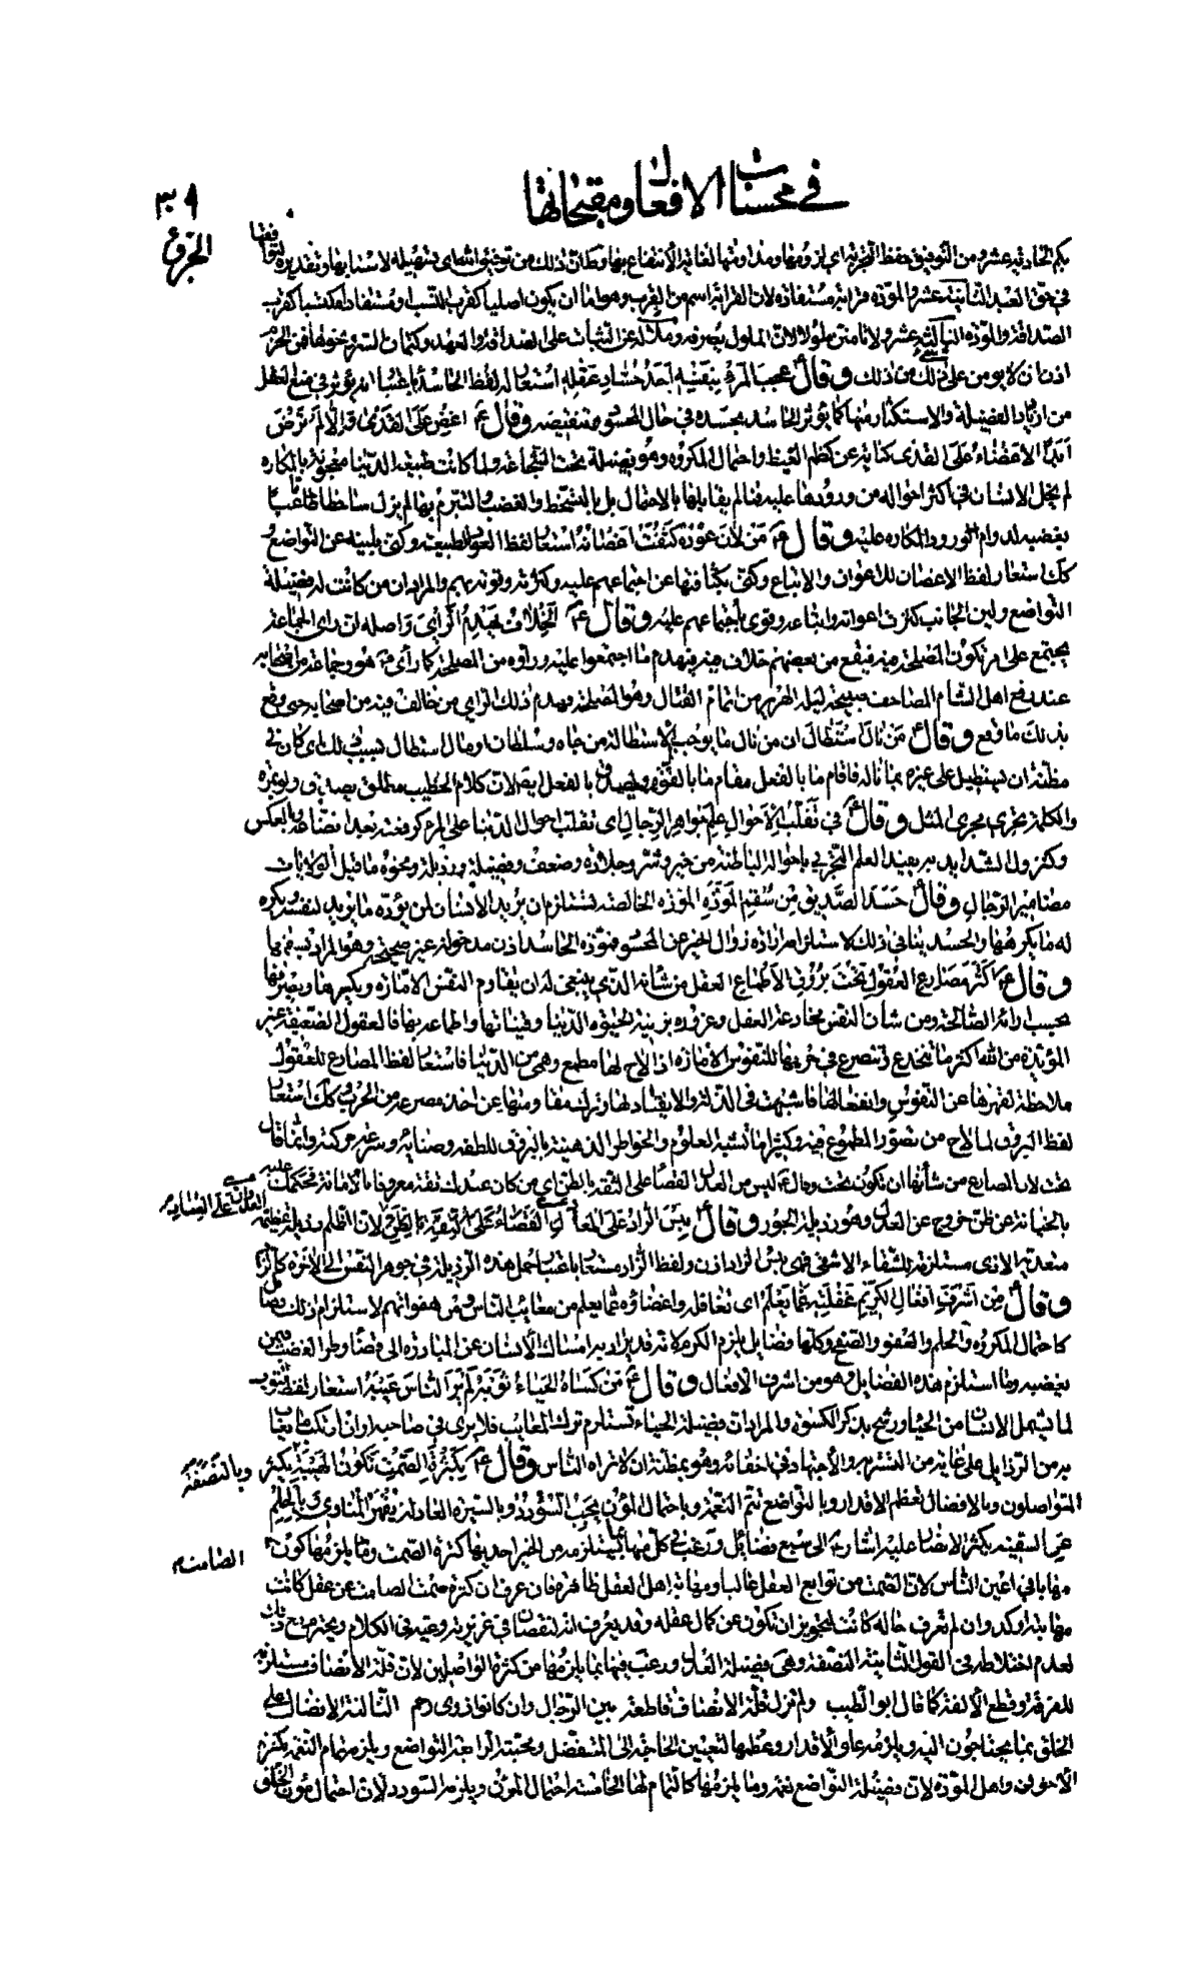 في محسنات الافعال ومقبحاتها
٣٠٩
الجزؤ
الحادية عشر ومن التوفيق حفظ التجربة اي لزومها ومداومتها لغاية الانتفاع بها وظاهر ان ذلك من توفيق الله اي تسهيله لاسبابها وتقديره
في حق العبد الثانية عشر والمودة قرابة مستفادة لان القرابة اسم من القرب وهو اما ان يكون اصليا كقرب النسب او مستفادا مكتسبا كقرب
الصداقة والمودة الثالثة عشر ولا تامنن ملولا لان الملول يصرفه ملاله عن الثبات على الصداقة والعهد وكتمان السر ونحوها فمن الحزم
اذن ان لا يومن على شيء من ذلك وقال عجب المرء بنفسه احد حساد عقله استعار له لفظ الحاسد باعتبار انه يؤثر في منع العقل
من ازدياد الفضيلة والاستكثار منها كما يؤثر الحاسد بحسده في حال المحسود وتنقيصه وقال ع اغض على القذى والا لم ترض
ابدا الاغضاء على القذى كناية عن كظم الغيظ واحتمال المكروه وهو فضيلة تحت الشجاعة ولما كانت طبيعة الدنيا معجونة بالمكاره
لم يخل الانسان في اكثر احواله من ورودها عليه فما لم يقابلها بالاحتمال بل بالتسخط والغضب والتبرم بها لم يزل ساخطا
بغضبه لدوام ورود المكاره عليه وقال ع من لان عوده كثفت اغصانه استعار لفظ العود للطبيعة وكنى بلينه عن التواضع
كك استعار لفظ الاغصان للاعوان والاتباع وكنى بكثافتها عن اجتماعهم عليه وكثرته وقوته بهم والمراد ان من كانت له فضيلة
التواضع ولين الجانب كثرت اعوانه واتباعه وقوي باجتماعهم عليه وقال ع الخلاف يهدم الرأي واصله ان راي الجماعة
يجتمع على امر تكون المصلحة فيه فيقع من بعضهم خلاف فيه فيهدم ما اجتمعوا عليه وراوه من المصلحة كما رأى ع هو وجماعة من اصحابه
عند رفع اهل الشام المصاحف صبيحة ليلة الهرير من اتمام القتال وهو المصلحة فهدم ذلك الراي من خالف فيه من اصحابه حتى وقع
بذلك ما وقع وقال ع من نال استطال ان من نال ما يوجب الاستطالة من جاه وسلطان او مال استطال بسبب ذلك اي كان في
مظنة ان يستطيل على غيره بما ناله فاقام ما بالفعل مقام ما بالقوة
والكلمة تجري مجرى المثل وقال ع في تقلب الاحوال علم جواهر الرجال اي تقلب احوال الدنيا على المرء كرفعته بعد اتضاعه وبالعكس
وكنزول الشدايد به يفيد العلم التجربي باحواله الباطنة من خير وشر وجلادة وضعف وفضيلة ورذيلة ونحوه ما قيل الولايات
مضامير الرجال وقال ع حسد الصديق من سقم المودة المودة الخالصة تستلزم ان يريد الانسان لمن يوده ما يريد لنفسه ويكره
له ما يكره لها والحسد ينافي ذلك لاستلزامه ارادة زوال الخير عن المحسود فمودة الحاسد اذن مدخولة غير صحيحة وهو المراد بسقمها
وقال ع اكثر مصارع العقول تحت بروق الاطماع العقل من شانه الذي ينبغي له ان يقاوم النفس الامارة ويكسرها ويصرفها
بحسب ارائه الصالحة ومن شان النفس مخادعة العقل وغروره بزينة الحيوة الدنيا وقيناتها واطماعه بها فالعقول الضعيفة غير
المؤيدة من الله اكثر ما تنخدع وتنصرع في حربها للنفوس الامارة اذا لاح لها مطمع وهمي من الدنيا فاستعار لفظ المصارع للعقول
ملاحظة لقهرها عن النفوس وانفعالها
لفظ البروق لما لاح من تصور المطموع فيه وكثيرا ما تشبه العلوم والخواطر الذهنية بالبروق للطفه وضيائه وسرعة حركته وانما قال
تحت لان المصارع من شأنها ان تكون تحت وقال ع ليس من العدل القضاء على الثقة بالظن اي من كان عندك ثقة معروفا بالامانة فحكمك عليه
بالخيانة عن ظن خروج عن العدل وهو رذيلة الجور وقال ع بئس الزاد الى المعاد العدوان على العباد لان الظلم رذيلة عظيمة
متعدية الاذى مستلزمة للشقاء الاشقى فهي بئس الزاد اذن ولفظ الزاد مستعار باعتبار حمل هذه الرذيلة في جوهر النفس الى الآخرة كالزاد
وقال ع من اشرف افعال الكريم غفلته عما يعلم اى تغافله واغضاؤه عما يعلم من معائب الناس وهفواتهم لاستلزام ذلك فضايل
كاحتمال المكروه والحلم والعفو والصفح وكلها فضايل يلزم الكرم
بغضبه وما استلزم هذه الفضايل وهو من اشرف الافعال وقال ع من كساه الحياء ثوبه لم ير الناس عيبه استعار لفظ الثوب
لما يشمل الانسان من الحياء ورشح بذكر الكسوة والمراد ان فضيلة الحياء تستلزم ترك المعايب فلا يرى في صاحبه وان ارتكب ما يعاب
به من الرذايل على غاية من التستر والاجتهاد في اخفائه وهو بمظنة ان لا تراه الناس وقال ع بكثرة الصمت تكون الهيبة وبالنصفة يكثر
المتواصلون وبالافضال تعظم الاقدار وبالتواضع تتم النعمة وباحتمال المؤن يجب السؤدد وبالسيرة العادلة يقهر المناوي وبالحلم
عن السفيه يكثر الانصار عليه اشار ع الى سبع فضايل ورغب في كل منها بما يستلزمه من الخير احديها كثرة الصمت ومما يلزمها كون الصامت
مهابا في اعين الناس لان الصمت من توابع العقل غالبا ومهابة اهل العقل ظاهرة فان عرف ان كثرة صمت الصامت عن عقل كانت
مهابته اوكد وان لم تعرف حاله كانت لتجويز ان تكون عن كمال عقله وقد يعرف انه لنقصان في غريزته وعيه في الكلام ويحترم مع ذلك
لعدم اختلاطه في القول الثانية النصفة وهي فضيلة العدل ورغب فيها بما يلزمها من كثرة الواصلين لان قلة الانصاف مستلزمة
للفرقة وقطع الالفة كما قال ابو الطيب ولم تزل قلة الانصاف قاطعة بين الرجال وان كانوا ذوي رحم الثالثة الافضال على
الخلق بما يحتاجون اليه ويلزمه علو الاقدار وعظمها لتعيين الحاجة الى المتفضل ومحبته الرابعة التواضع ويلزمه تمام النعمة بكثرة
الاخوان واهل المودة لان فضيلة التواضع نعمة وما يلزمها كالتمام لها الخامسة احتمال المؤن ويلزمه السودد لان احتمال مؤن الخلق